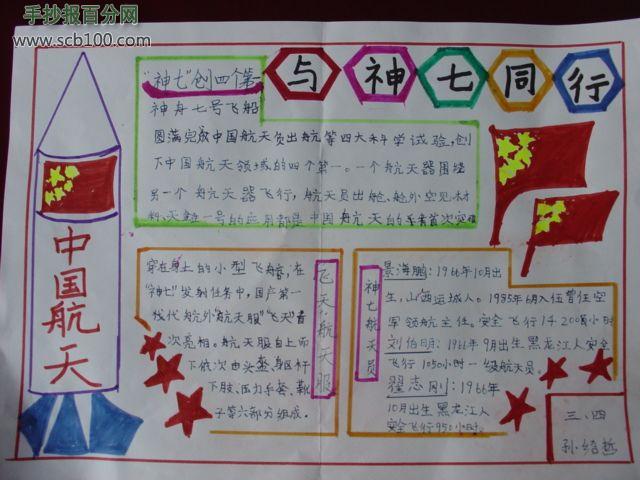 手抄报百分网
www.scb100.com
与神七同行
"神七"创四个第一
神舟七号飞船
圆满完成中国航天员出舱等四大科学试验,创
下中国航天领域的四个第一。一个航天器围绕
另一个航天器飞行,航天员出舱、舱外空见材
料、天链一号的应用都是中国航天的
中国航天
穿在身上的小型飞船,在
"神七"发射任务中,国产第一
代舱外航天服"飞天"首
次亮相。航天服自上而
下依次由头盔、躯干
下肢、压力手套、靴
子等六部分组成。
飞天航天服
神七航天员
景海鹏:1966年10月出
生,山西运城人。1985年6月入伍曾任空
军领航主任。安全飞行1200小时
刘伯明:1966年9月出生黑龙江人安全
飞行1050小时一级航天员。
翟志刚:1966年
10月出生黑龙江人
安全飞行950小时。
三、四
孙绍哲